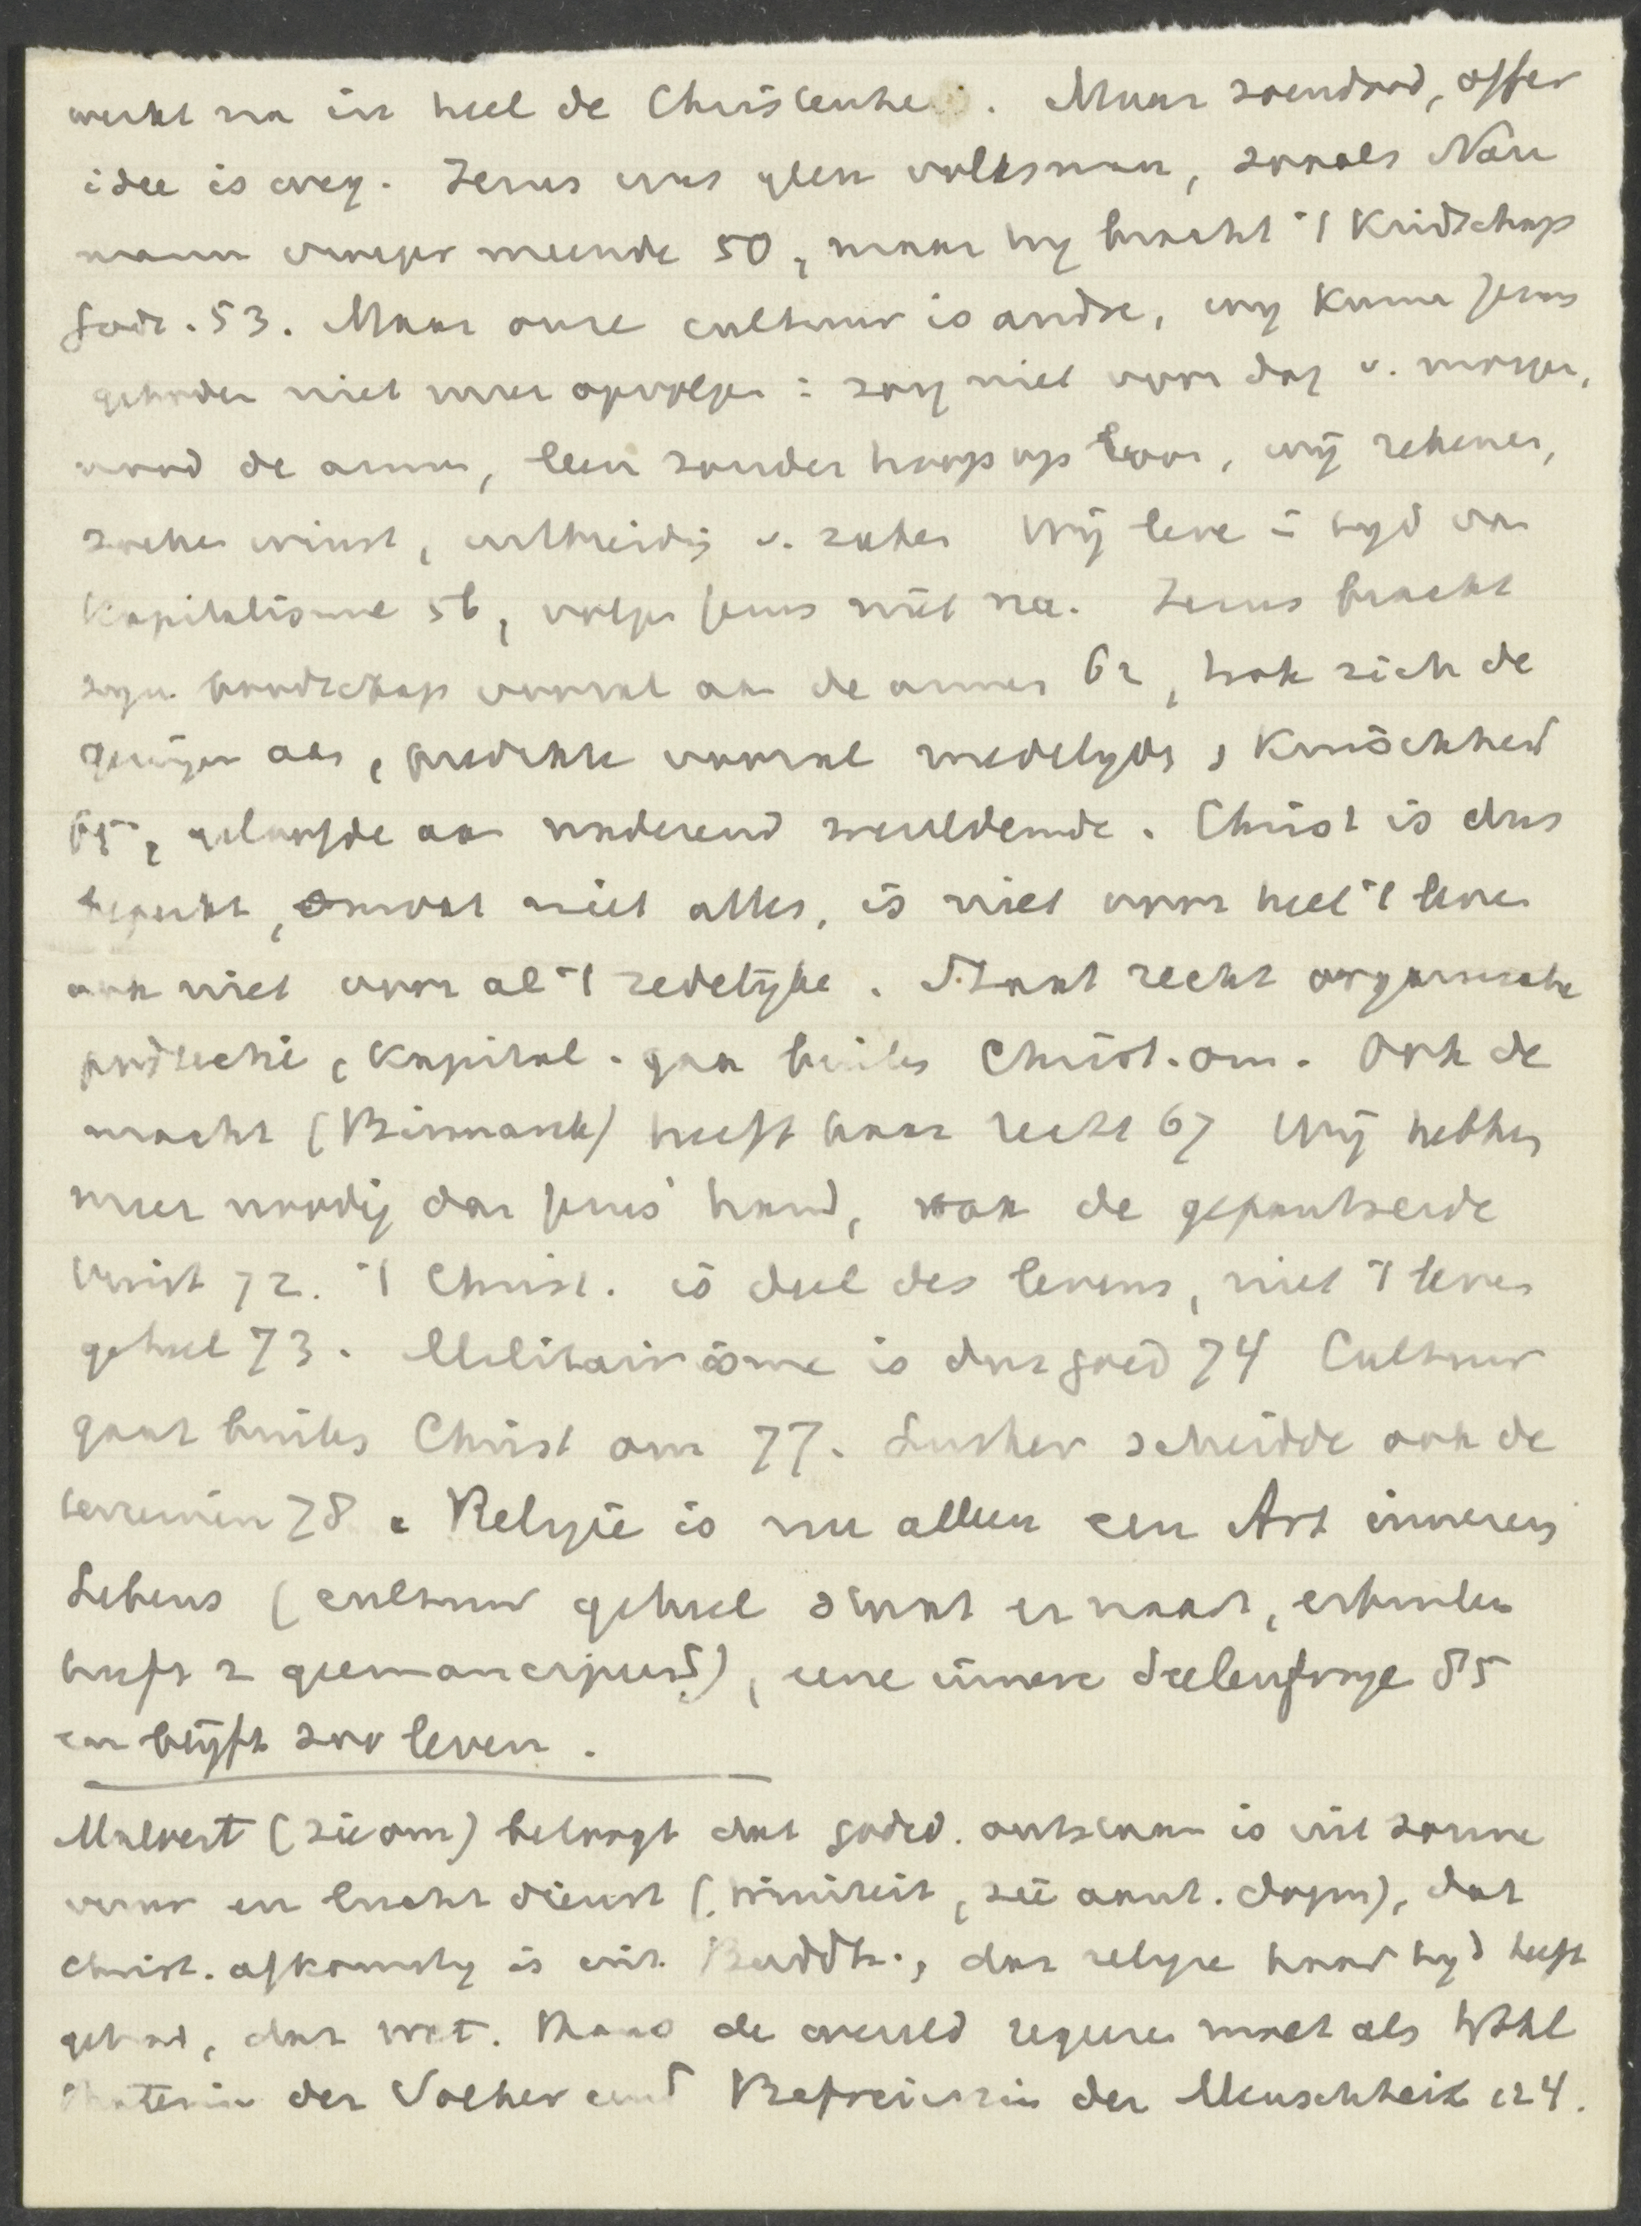 werkt na in heel de Christenheid. Maar zoendood, offer
idee is weg. Jezus was geen volksman, zooals Nau
mann vroeger meende 50, maar hy bracht 't
Gods. 53. Maar onze cultuur is andre, wy kunne Jezus
geboden niet meer opvolgen : zorg niet voor dag v. morgen,
de armen, leen zonder hoop op loon, wij rekenen,
zoeken winst, v. zaken Wij leve i tyd van
Kapitalisme 56, volgen Jezus niet na. Jezus bracht
zyn boodschap vooral aan de armen 62, trok zich de
geringen aan, predikte vooral medelyden,
65, geloofde aan naderend wereldeinde. Christ is dus
beperkt, omvat niet alles, is niet voor heel 't leven
ook niet voor al 't zedelijke. Staat recht organisatie
productie, Kapitaal - gaan buiten Christ. om. Ook de
macht (Bismarck) heeft haar recht 67 Wij hebben
meer noodig dan Jezus' hand, ook de gepantserde
vuist 72. 't Christ. is deel des levens, niet 't leven
geheel 73. Militairisme is dus goed 74 Cultuur
gaat buiten Christ om 77. Luther scheidde ook de
terreinen 78. Religie is nu alleen een Art inneren
Lebens (cultuur geheel staat er naast, erbuiten
heeft z geemancipeerd), eene innere Seelenfrage 85
en blijft zoo leven.
Malvert (zie om) betoogt dat godsd. ontstaan is uit zonne
vuur en lucht dienst (triniteit, zie aant. dogm), dat
christ. afkomstig is uit Buddh., dat religie haar tyd heeft
gehad, dat wet. de wereld regeren moet als Wohl
der Völker und Befreierin der Menschheit 124.